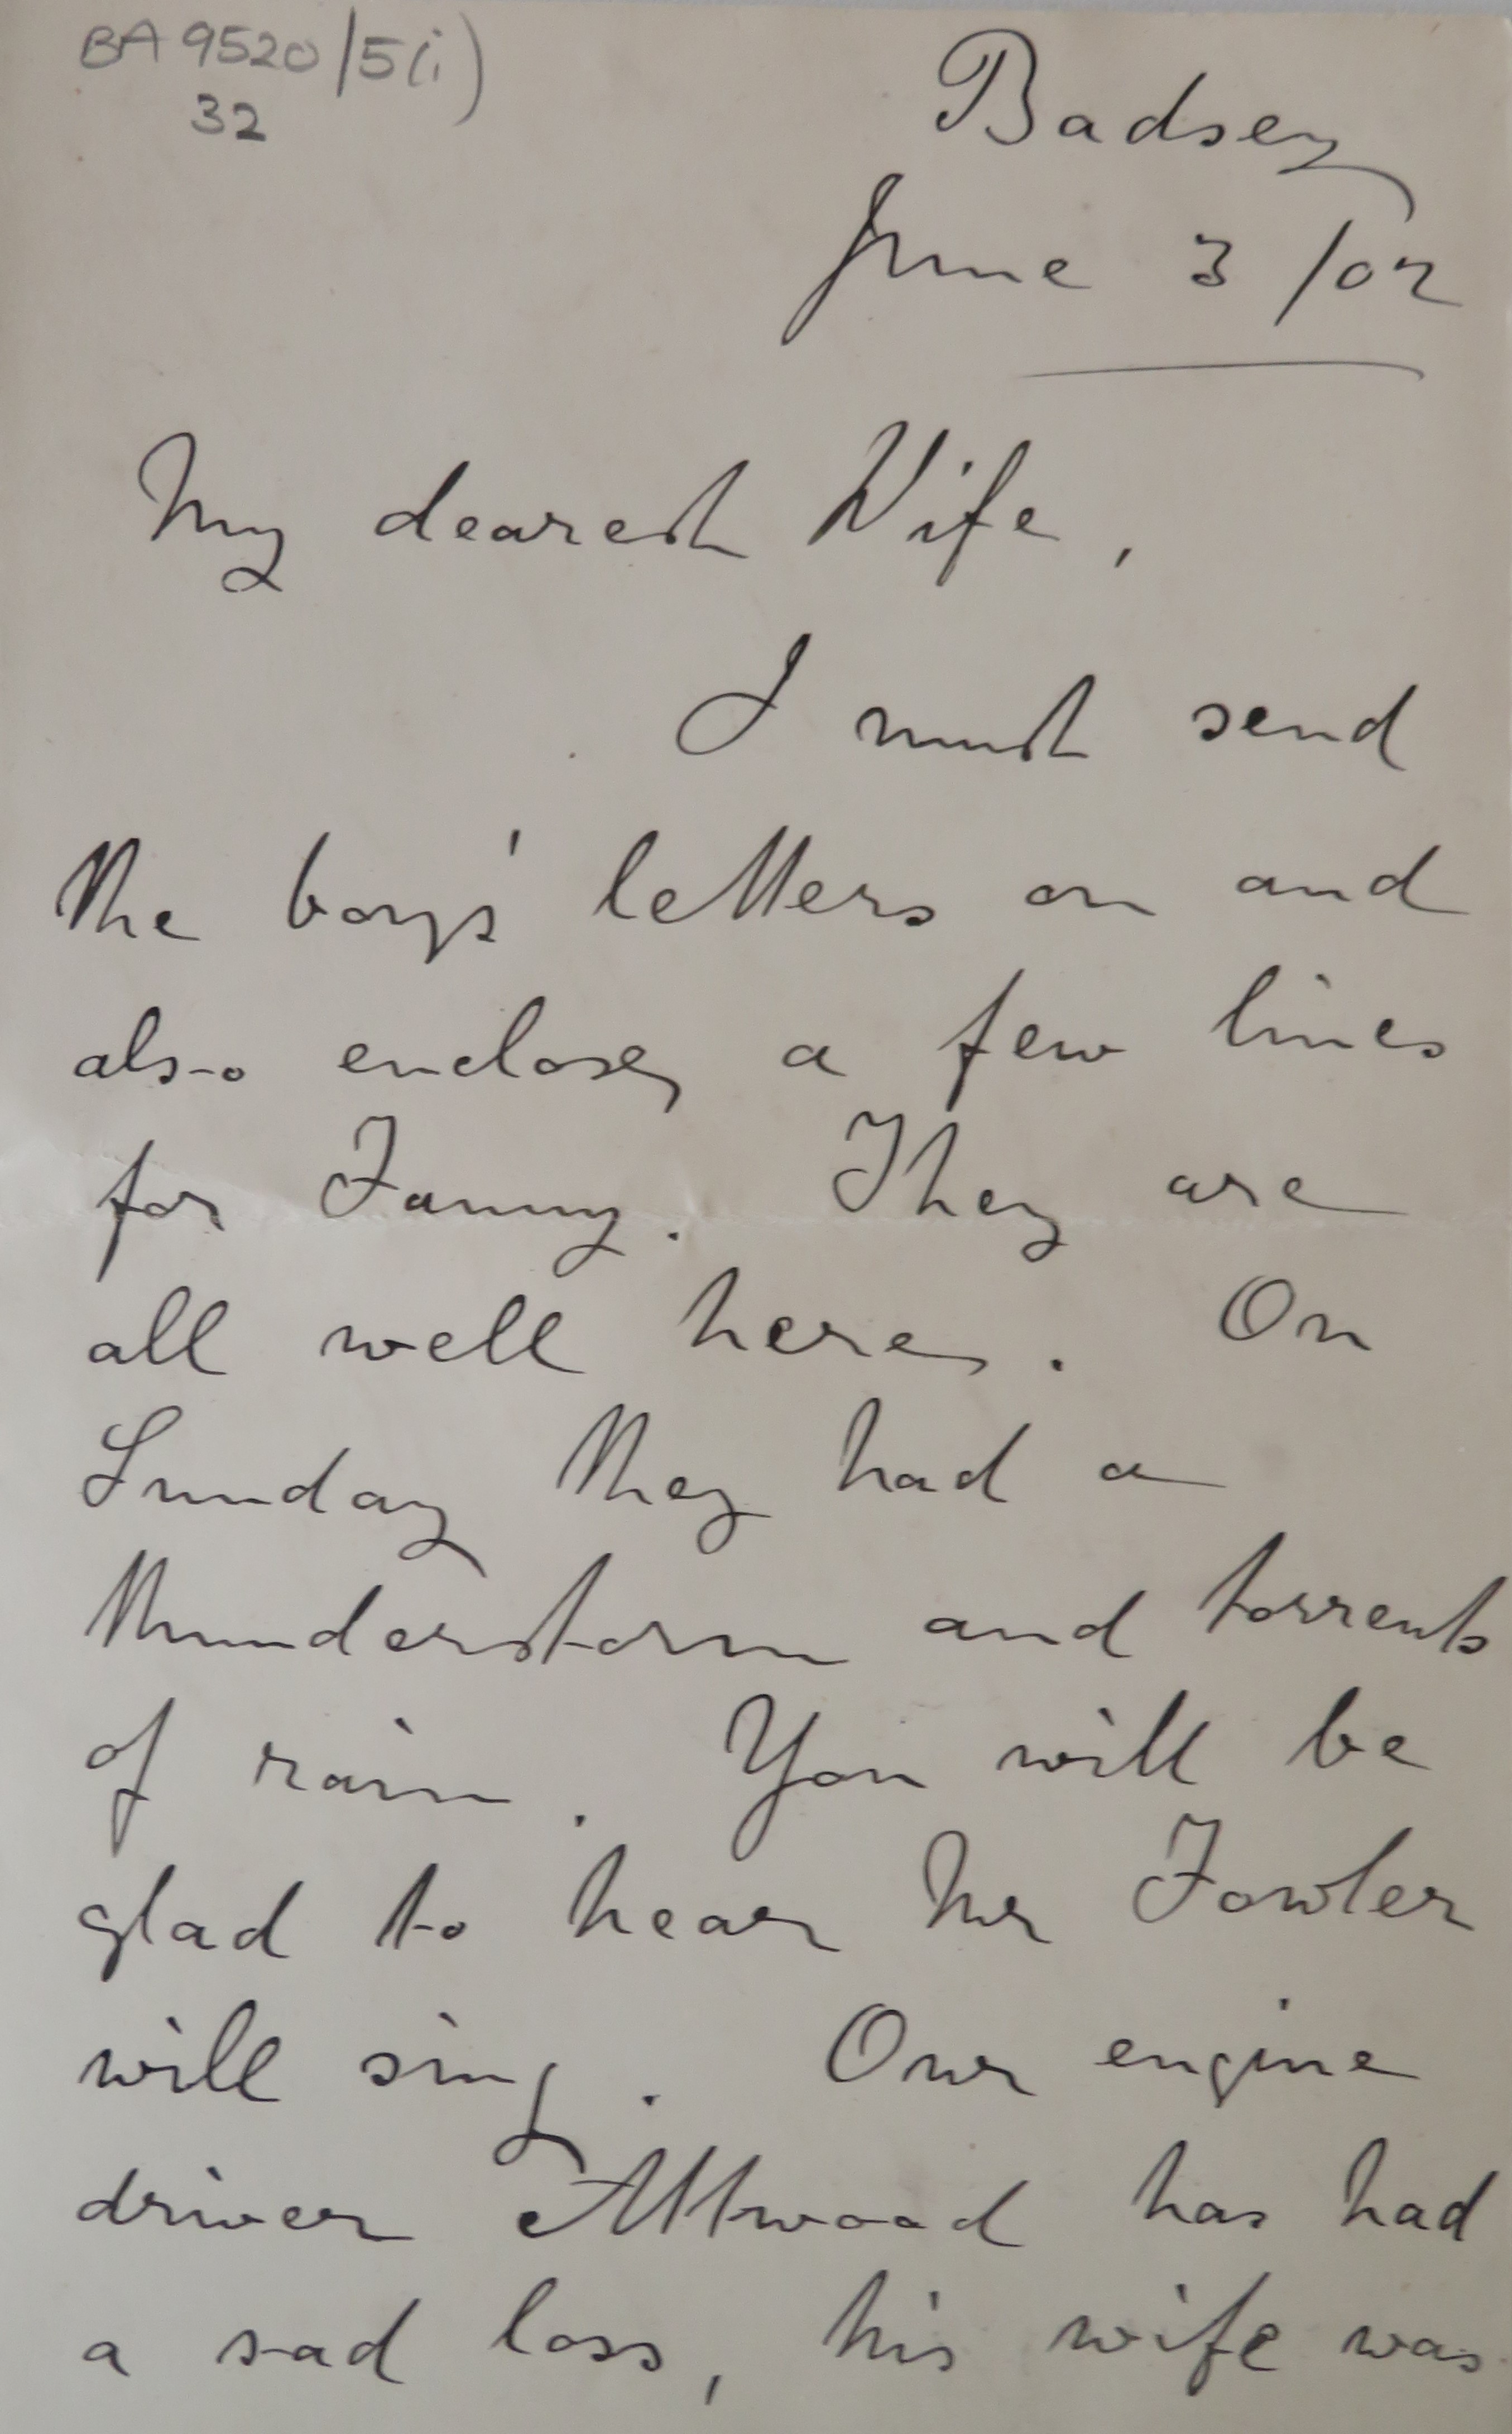 BA 9520/5(i)
32
Badsey
June 3 /02
My dearest Wife,
I must send
the boys' letters on and
also enclose a few lines
for Fanny. They are
all well here. On
Sunday they had a
thunderstorm and torrents
of rain. You will be
glad to hear Mr Fowler
will sing. Our engine
driver Attwood has had
a sad loss, his wife was